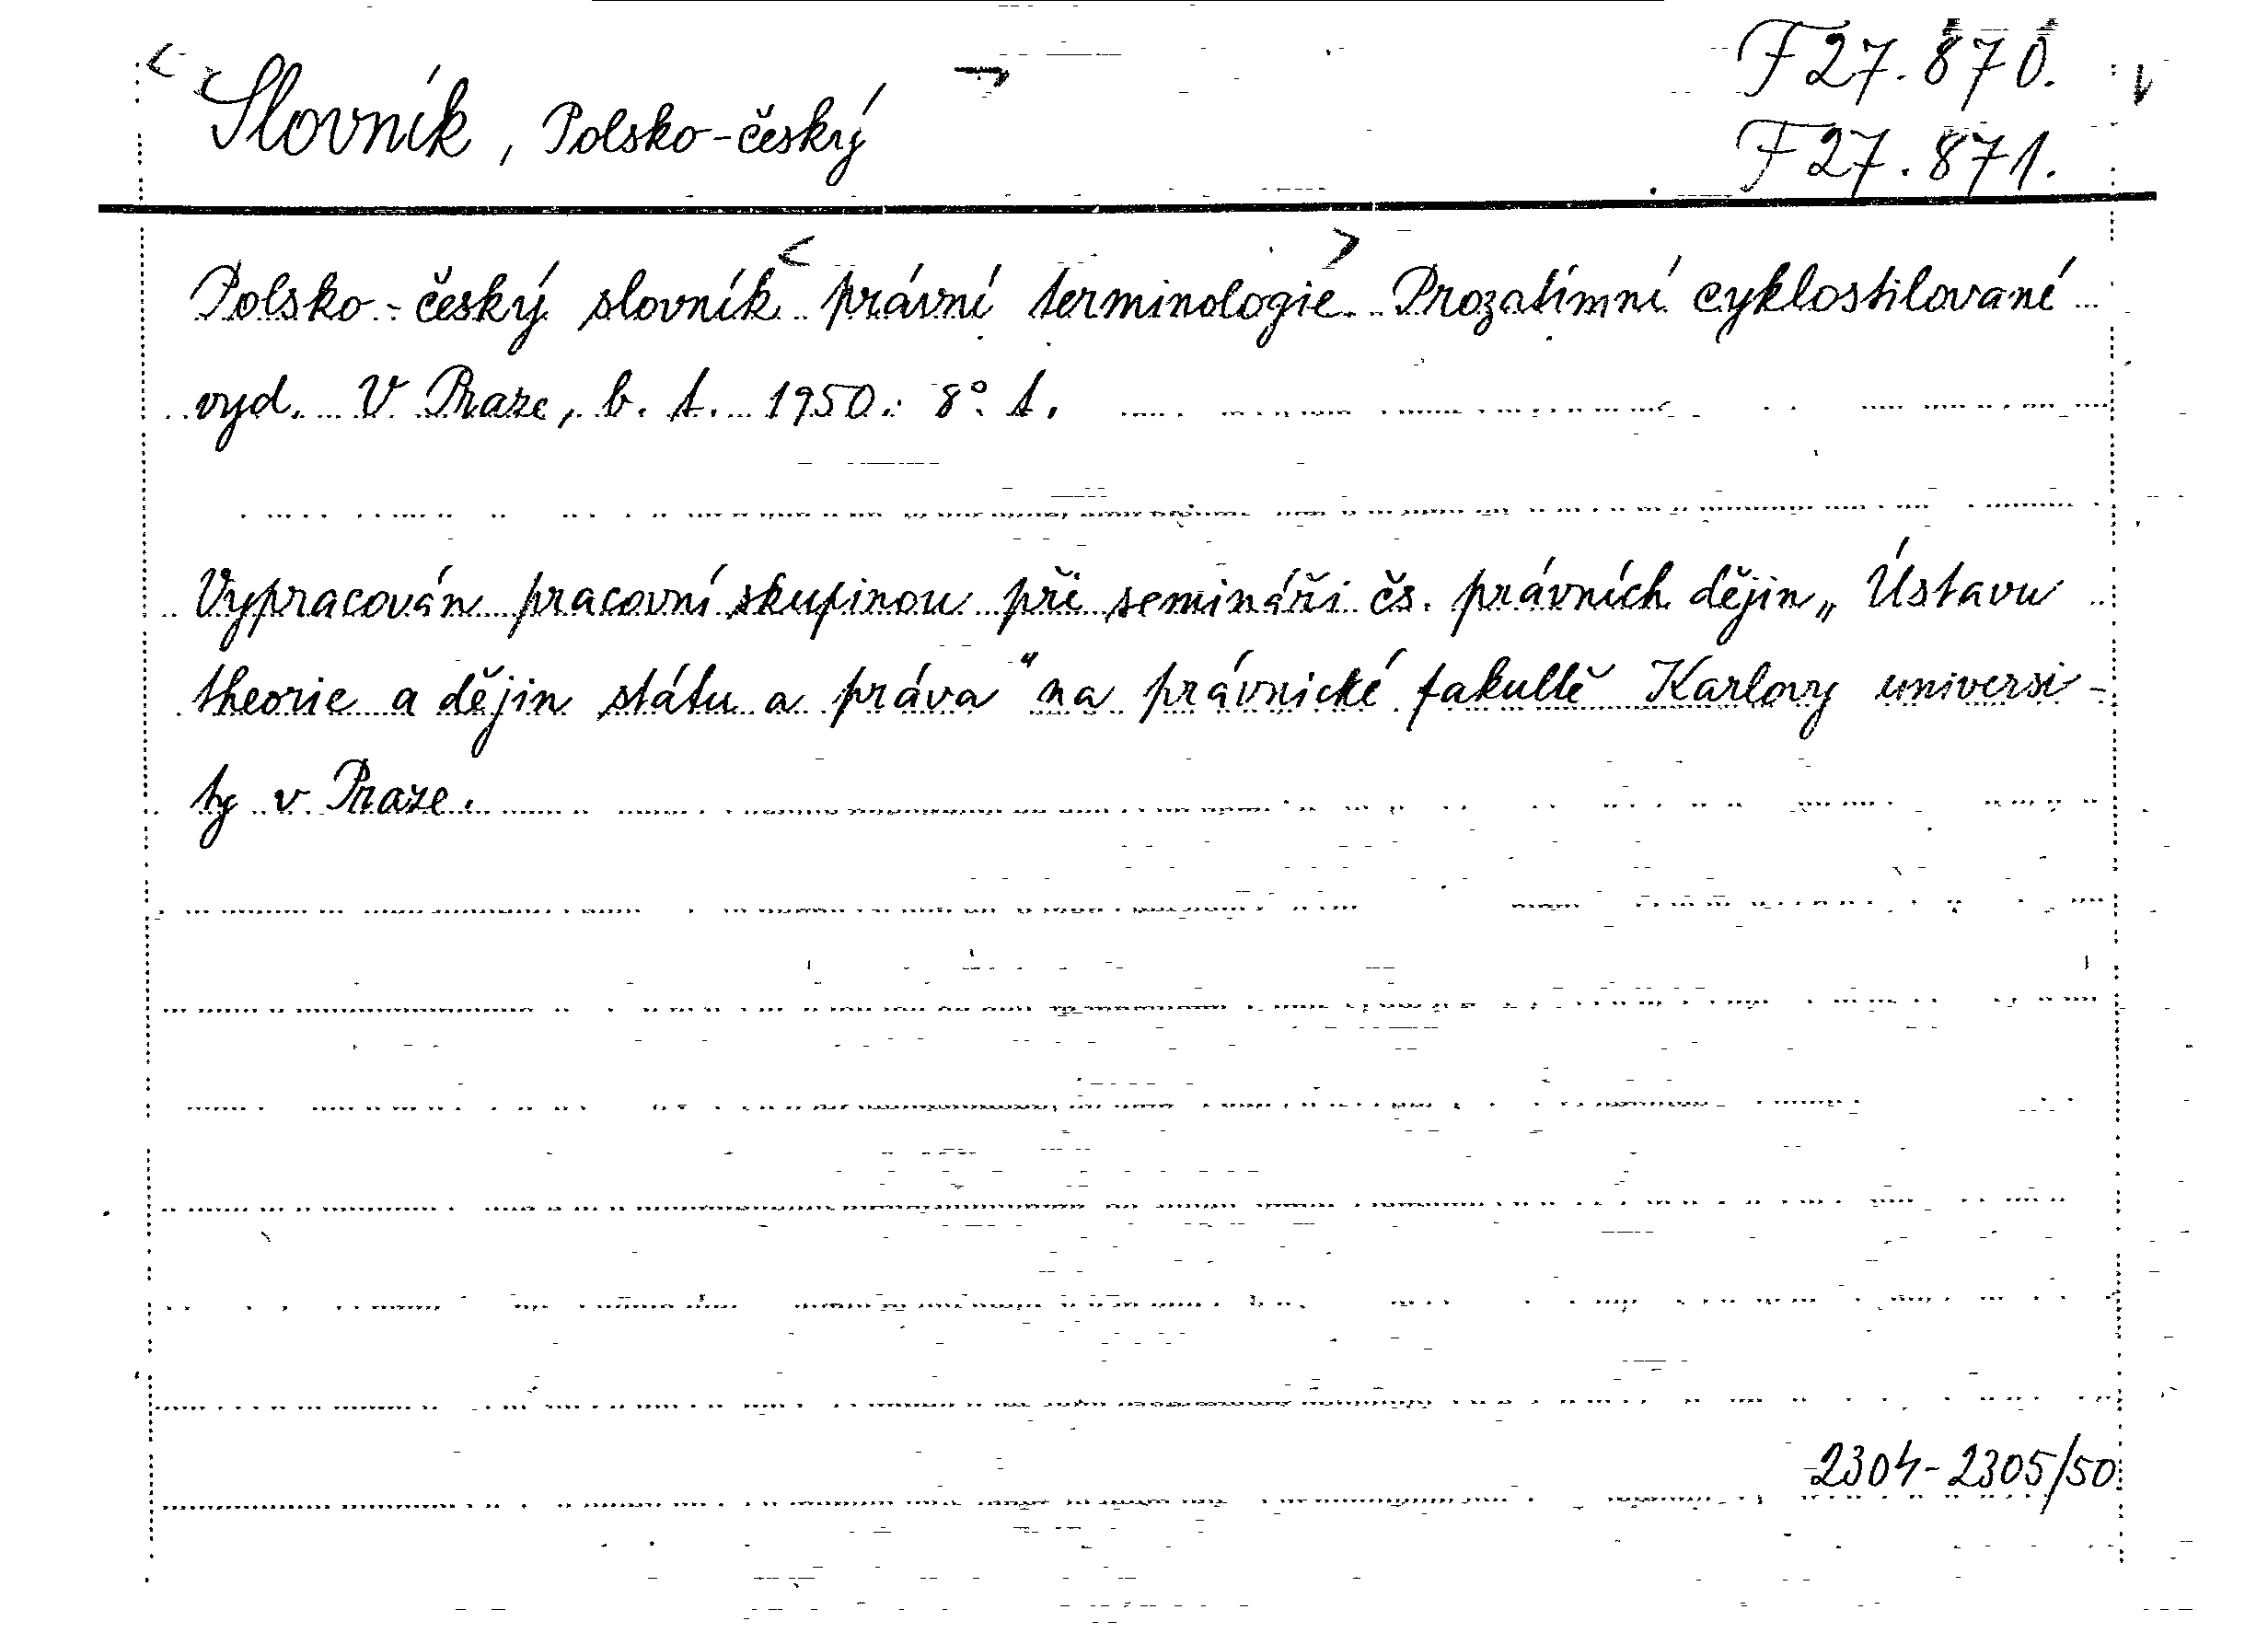 Slovník, Polsko-český
F 27.870.
F 27.871.
Polsko-český slovník <právní terminologie> Prozatímní cyklostilované
vyd. V Praze, b. t. 1950. 8°. 1.
Vypracován pracovní skupinou při semináři čs. právních dějin „Ústavu
theorie a dějin státu a práva“ na právnické fakultě Karlovy universi-
ty v Praze.
2304-2305/50